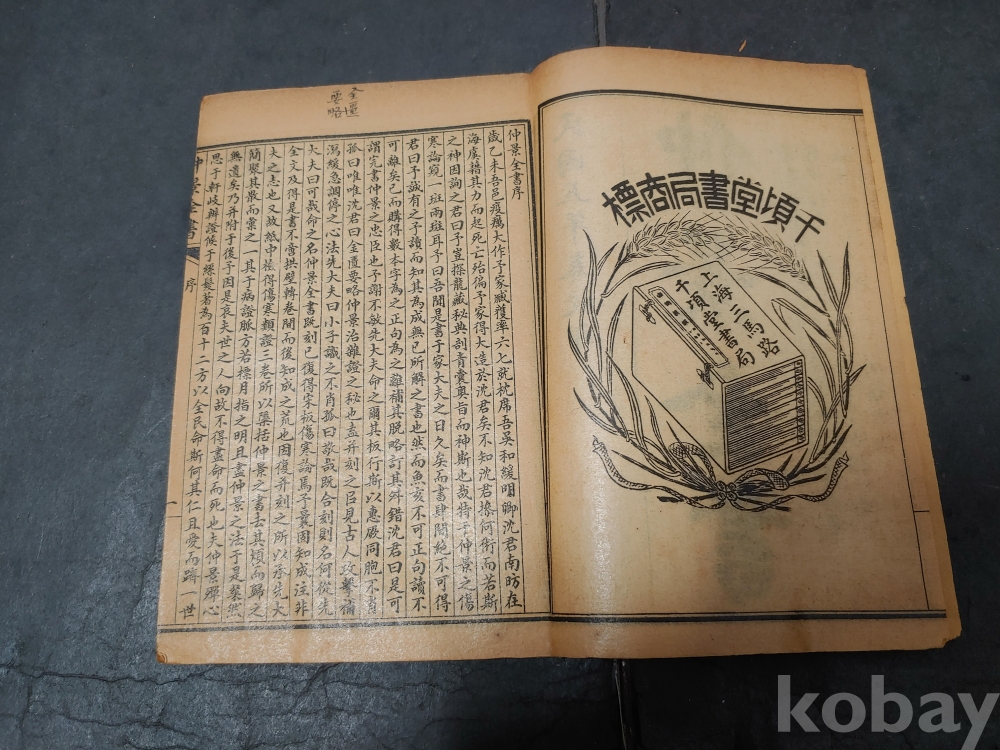 千頃堂書局商標
上海三馬路
千頃堂書局
金匱
要略
仲景全書序
歲乙未吾邑疫癘大作予家臧獲率六七就枕席吾吳和緩明卿沈君南昉在
海虞藉其力而起死亡殆徧予家得大造於沈君矣不知沈君操何術而若斯
之神因詢之君曰予豈探龍藏秘典剖青囊奧旨而神斯也哉特于仲景之傷
寒論窺一斑兩斑耳予曰吾聞是書于家大夫之日久矣而書肆間絕不可得
君曰予誠有之予讀而知其為成無已所解之書也然而魚亥不可正句讀不
可離矣已而購得數本字為之正句為之離補其脫略訂其舛錯沈君曰是可
謂完書仲景之忠臣也予謝不敏先大夫命之爾其板行斯以惠厥同胞不肖
孤曰唯唯沈君曰金匱要略仲景治雜證之秘也盍并刻之㠯見古人攻擊補
瀉緩急調停之心法先大夫曰小子識之不肖孤曰敬哉既合刻則名何從先
大夫曰可哉命之名仲景全書既刻已復得宋板傷寒論焉予曩固知成注非
全文及得是書不啻拱璧轉卷間而後知成之荒也因復并刻之所以承先大
夫之志也又故紙中檢得傷寒類證三卷所以檃括仲景之書去其煩而歸之
簡聚其散而彙之一其于病證脈方若標月指之明且盡仲景之法于是粲然
無遺矣乃并附于後予因是哀夫世之人向故不得盡命而死也夫仲景殫心
思于軒岐辨證候于絲髮著為百十二方以全民命斯何其仁且愛而躋一世
仲景全書
序
一
kobay